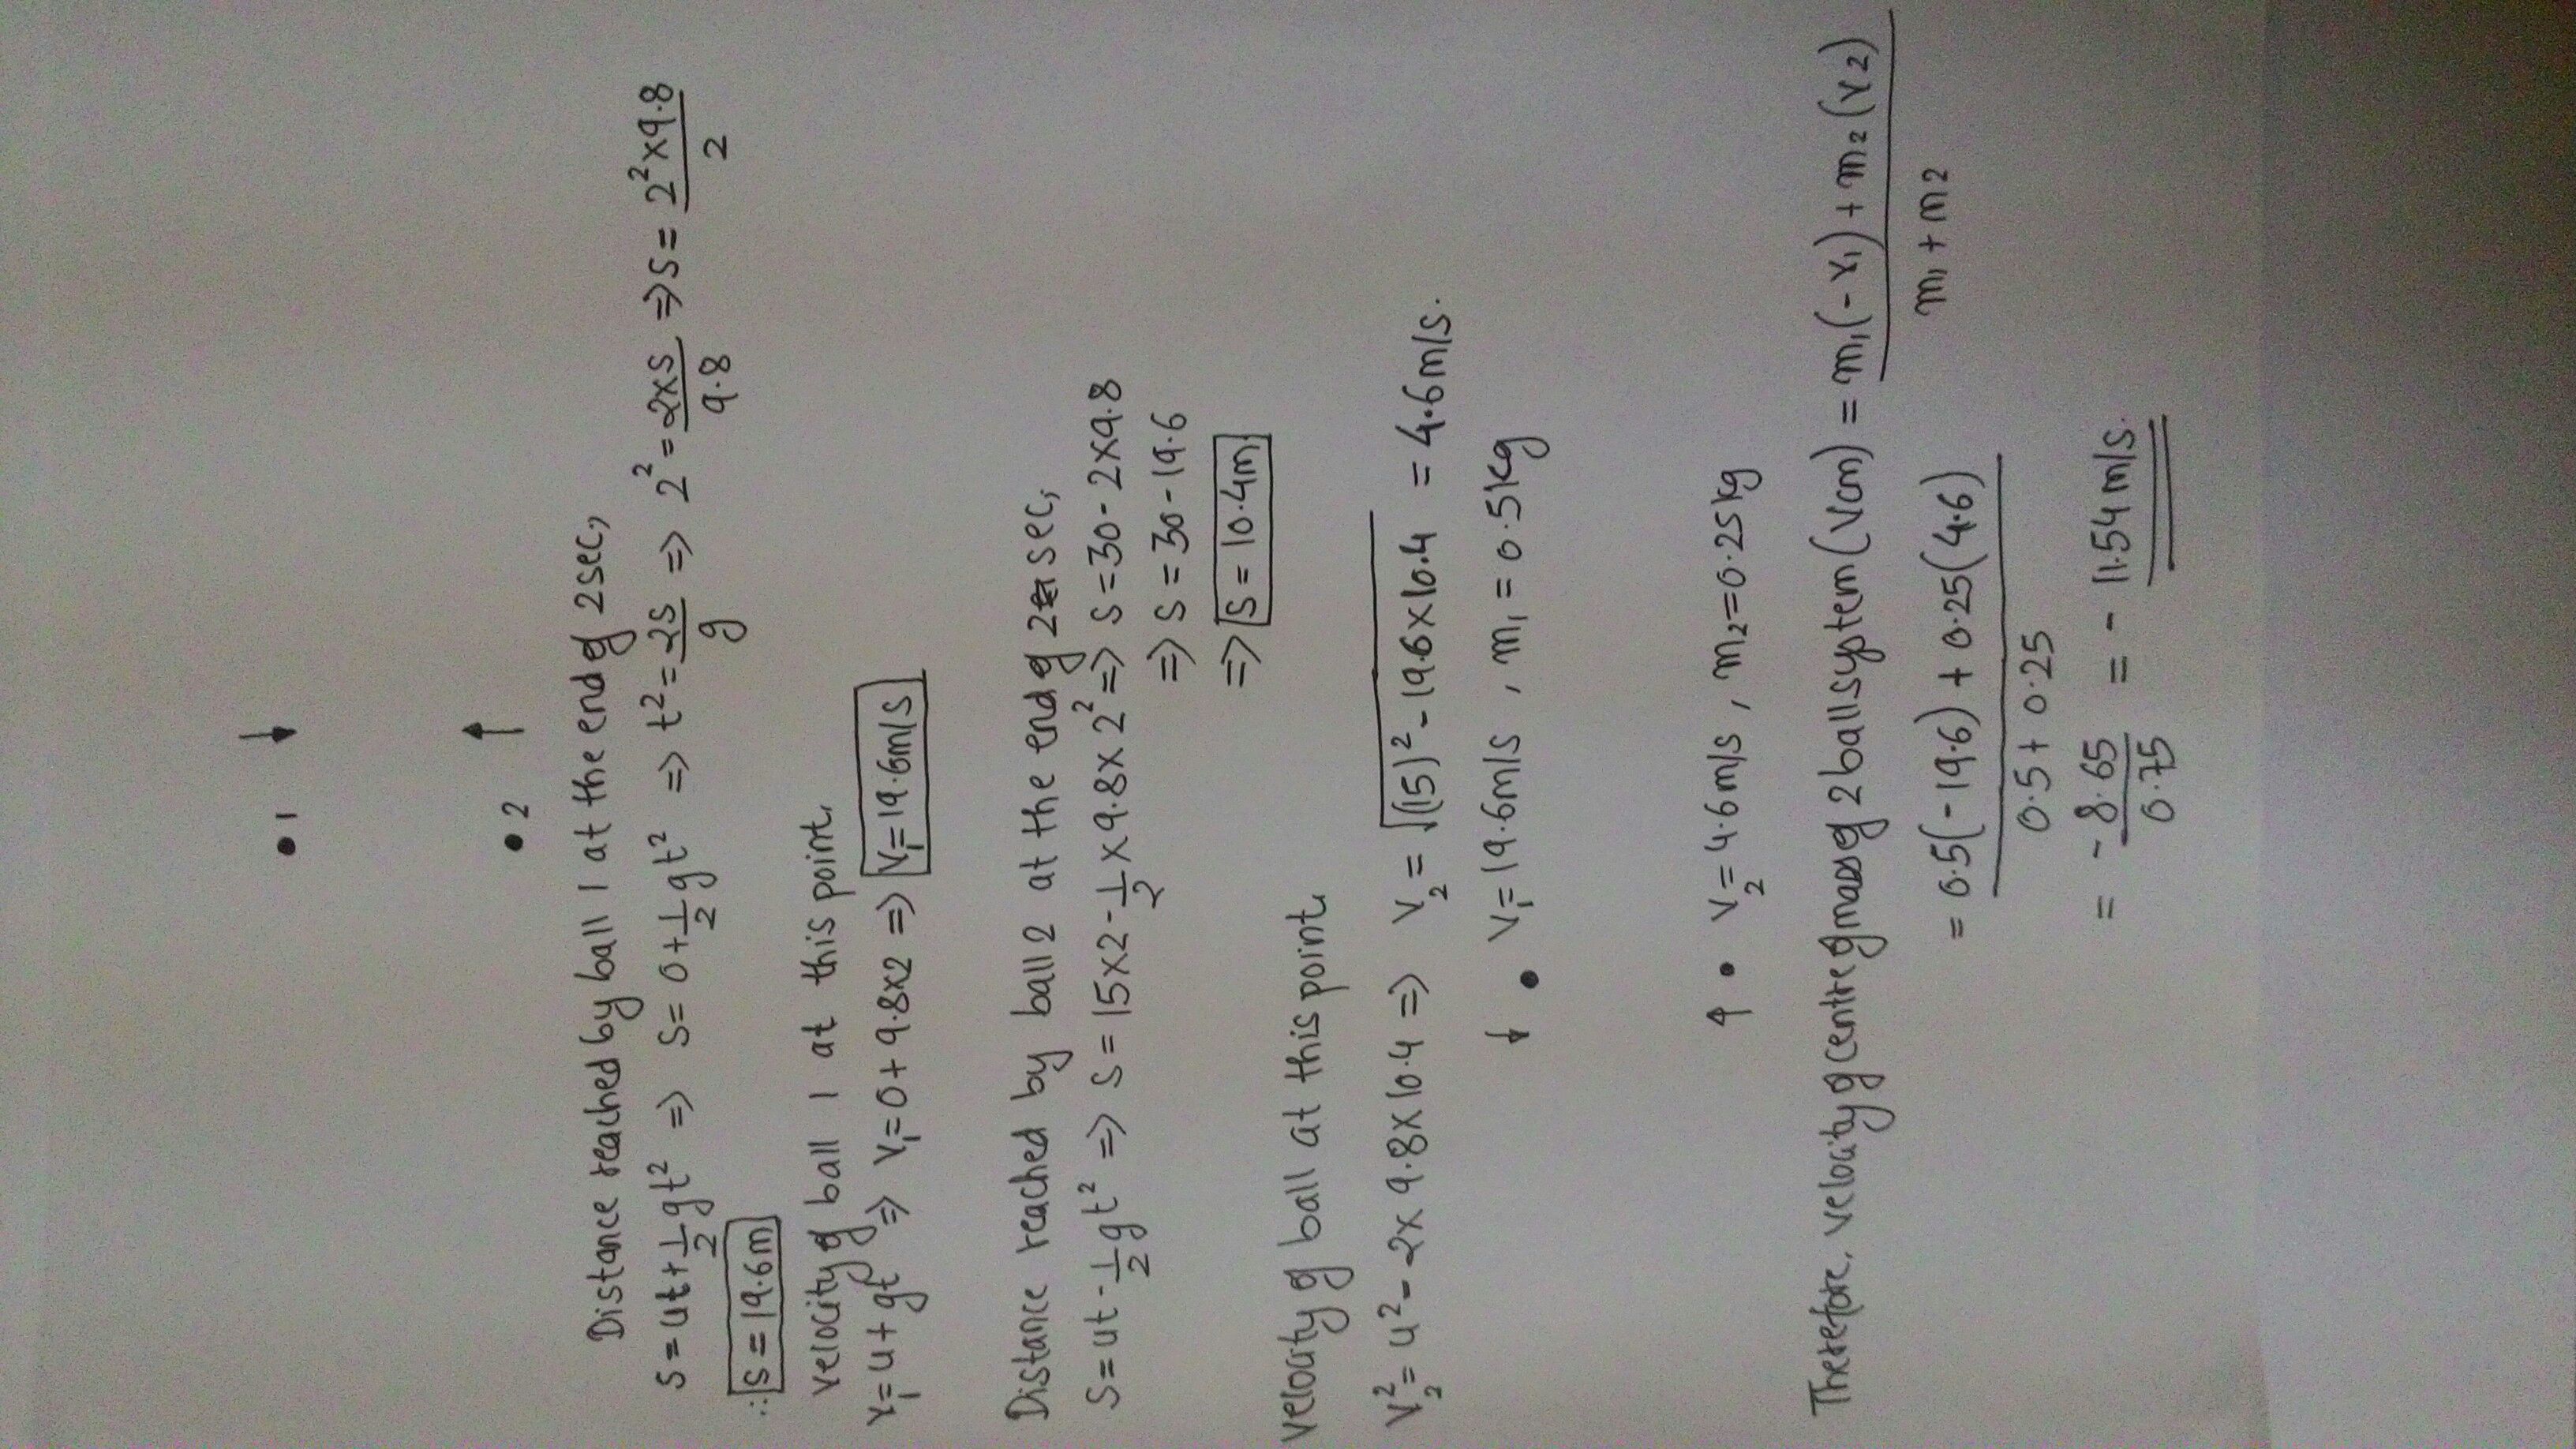 • 1 ↓
• 2 ↑
Distance reached by ball 1 at the end of 2sec,
S = ut + 1/2 gt² ⇒ S = 0 + 1/2 gt² ⇒ t² = 2S/g ⇒ 2² = 2xS/9.8 ⇒ S = 2²x9.8/2
∴ S = 19.6m
velocity of ball 1 at this point.
V₁ = u + gt ⇒ V₁ = 0 + 9.8x2 ⇒ V₁ = 19.6m/s
Distance reached by ball 2 at the end of 2 sec,
S = ut - 1/2 gt² ⇒ S = 15x2 - 1/2 x 9.8 x 2² ⇒ S = 30 - 2x9.8
⇒ S = 30 - 19.6
⇒ S = 10.4m
velocity of ball at this point.
V₂² = u² - 2x 9.8x10.4 ⇒ V₂ = √(15)² - 19.6x10.4 = 4.6m/s.
↓ • V₁ = 19.6m/s , m₁ = 0.5kg
↑ • V₂ = 4.6m/s , m₂ = 0.25kg
Therefore, velocity of centre of mass of 2 ball system (Vcm) = m₁(-v₁) + m₂(v₂) / m₁ + m₂
= 0.5(-19.6) + 0.25(4.6) / 0.5 + 0.25
= -8.65/0.75 = - 11.54 m/s.